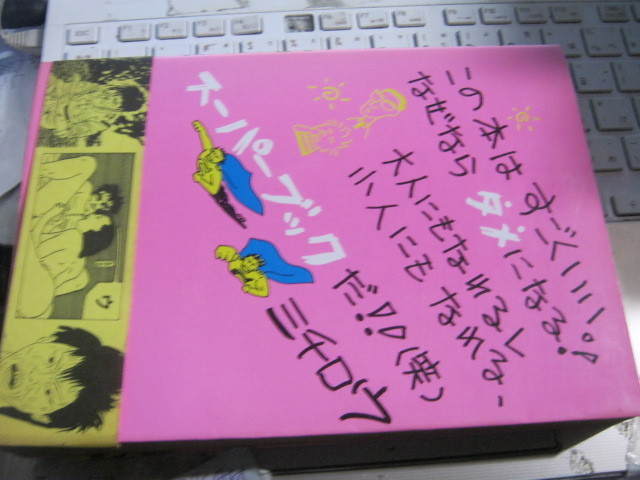 この本は すごくいい!!
なぜなら ダメになる!
大人にもなれるし
人にも なれる-
スーパーブック
だ!!(笑)
ミチロウ
ウ